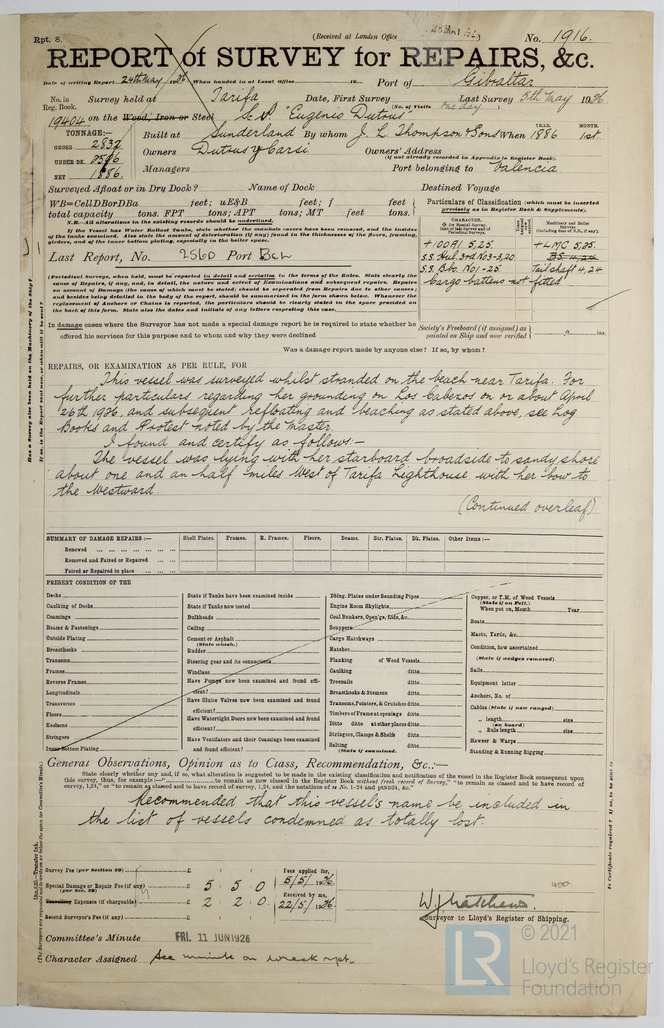 Rpt. 8.
(Received at London Office
No. 1916.
REPORT of SURVEY for REPAIRS, &c.
Date of writing Report 24th May 1926 When handed in at Local Office 19 Port of Gibraltar
No. in Reg. Book. Survey held at Tarifa Date, First Survey Last Survey 5th May 1926
(No. of Visits One day)
19404 on the Wood, Iron or Steel "Eugenio Dutrus"
TONNAGE:—
GROSS 2832
UNDER DK.
NET 1886.
Built at Sunderland By whom J. L. Thompson & Sons When 1886 1st
YEAR. MONTH.
Owners Dutrus y Carsi Owners' Address
(if not already recorded in Appendix to Register Book).
Managers Port belonging to Valencia
Surveyed Afloat or in Dry Dock? Name of Dock Destined Voyage
WB=CellDBorDBa feet; uE&B feet; f feet
total capacity tons. FPT tons; APT tons; MT feet tons.
N.B.—All alterations in the existing records should be underlined.
If the Vessel has Water Ballast Tanks, state whether the manhole covers have been removed, and the insides
of the tanks examined. Also state the amount of deterioration (if any) found in the thicknesses of the floors, framing,
girders, and of the inner bottom plating, especially in the boiler space.
Particulars of Classification (which must be inserted
precisely as in Register Book & Supplements).
CHARACTER.
Machinery and Boiler Surveys
+100A1 5,25. +LMC 5,25.
S.S. Hul. 3rd No3-3,20 BS 4,24
S.S. Bbo. No1-25. Tailshaft 4,24
Cargo battens not fitted
Last Report, No. 2560 Port Bcl
(Periodical Surveys, when held, must be reported in detail and seriatim in the terms of the Rules. State clearly the
cause of Repairs, if any, and, in detail, the nature and extent of Examinations and subsequent repairs. Repairs
on account of Damage (the cause of which must be stated) should be separated from Repairs due to other causes;
and besides being detailed in the body of the report, should be summarised in the form shown below. Whenever the
replacement of Anchors or Chains is reported, the particulars should be clearly stated in the space provided on
the back of this form. State also the dates and initials of any letters respecting this case.
In damage cases where the Surveyor has not made a special damage report he is required to state whether he
offered his services for this purpose and to whom and why they were declined
Society's Freeboard (if assigned) as
painted on Ship and now verified ft. ins.
Was a damage report made by anyone else? If so, by whom?
REPAIRS, OR EXAMINATION AS PER RULE, FOR
This vessel was surveyed whilst stranded on the beach near Tarifa. For
further particulars regarding her grounding on Los Cabezos on or about April
26th 1926, and subsequent refloating and beaching as stated above, see Log
Books and Protest noted by the Master.
I found and certify as follows:-
The vessel was lying with her starboard broadside to sandy shore
about one and an half miles West of Tarifa Lighthouse with her bow to
the Westward.
(Continued overleaf)
SUMMARY OF DAMAGE REPAIRS:— Shell Plates. Frames. R. Frames. Floors. Beams. Str. Plates. Dk. Plates. Other Items:—
Renewed
Removed and Faired or Repaired
Faired or Repaired in place
PRESENT CONDITION OF THE
Decks
Caulking of Decks
Coamings
Beams & Fastenings
Outside Plating
Breasthooks
Transoms
Frames
Reverse Frames
Longitudinals
Transverses
Floors
Keelsons
Stringers
Inner Bottom Plating
State if Tanks have been examined inside
State if Tanks now tested
Bulkheads
Ceiling
Cement or Asphalt
(State which.)
Rudder
Steering gear and its connections
Windlass
Have Pumps now been examined and found efficient?
Have Sluice Valves now been examined and found
efficient?
Have Watertight Doors now been examined and found
efficient?
Have Ventilators and their Coamings been examined
and found efficient?
Dblng. Plates under Sounding Pipes
Engine Room Skylights
Coal Bunkers, Open'gs, Lids, &c.
Scuppers
Cargo Hatchways
Hatches
Planking of Wood Vessels
Caulking ditto
Treenails ditto
Breasthooks & Stemson ditto
Transoms, Pointers, & Crutches ditto
Timbers of Frame at openings ditto
Ditto ditto at other places ditto
Stringers, Clamps & Shelfs ditto
Salting ditto
(State if examined.)
Copper, or Y.M. of Wood Vessels
(State if on Felt.)
When put on, Month Year
Boats
Masts, Yards, &c.
Condition, how ascertained
(State if wedges removed)
Sails
Equipment letter
Anchors, No. of
Cables (State if now ranged)
" length (on board) size
" Rule length size
Hawser & Warps
Standing & Running Rigging
General Observations, Opinion as to Class, Recommendation, &c.:—
State clearly whether any, and if so, what alteration is suggested to be made in the existing classification and notification of the vessel in the Register Book consequent upon
this survey, thus, for example :—" to remain as now classed in the Register Book without fresh record of Survey," "to remain as classed and to have record of
survey, 1,24," or "to remain as classed and to have record of survey, 1,24, and the notations of ss No. 1-24 and ptND24, &c."
Recommended that this vessel's name be included in
the list of vessels condemned as totally lost.
Survey Fee (per Section 29) £ : :
Special Damage or Repair Fee (if any) £ 5 : 5 : 0
(per Sec. 29)
Travelling Expenses (if chargeable) £ 2 : 2 : 0
Second Surveyor's Fee (if any) £ : :
Fees applied for,
8/5/1926
Received by me,
22/5/1926
400
W. J. Matthews.
Surveyor to Lloyd's Register of Shipping.
Committee's Minute FRI. 11 JUN 1926
Character Assigned See minute on wreck rpt.
© 2021
LR
Lloyd's Register
Foundation